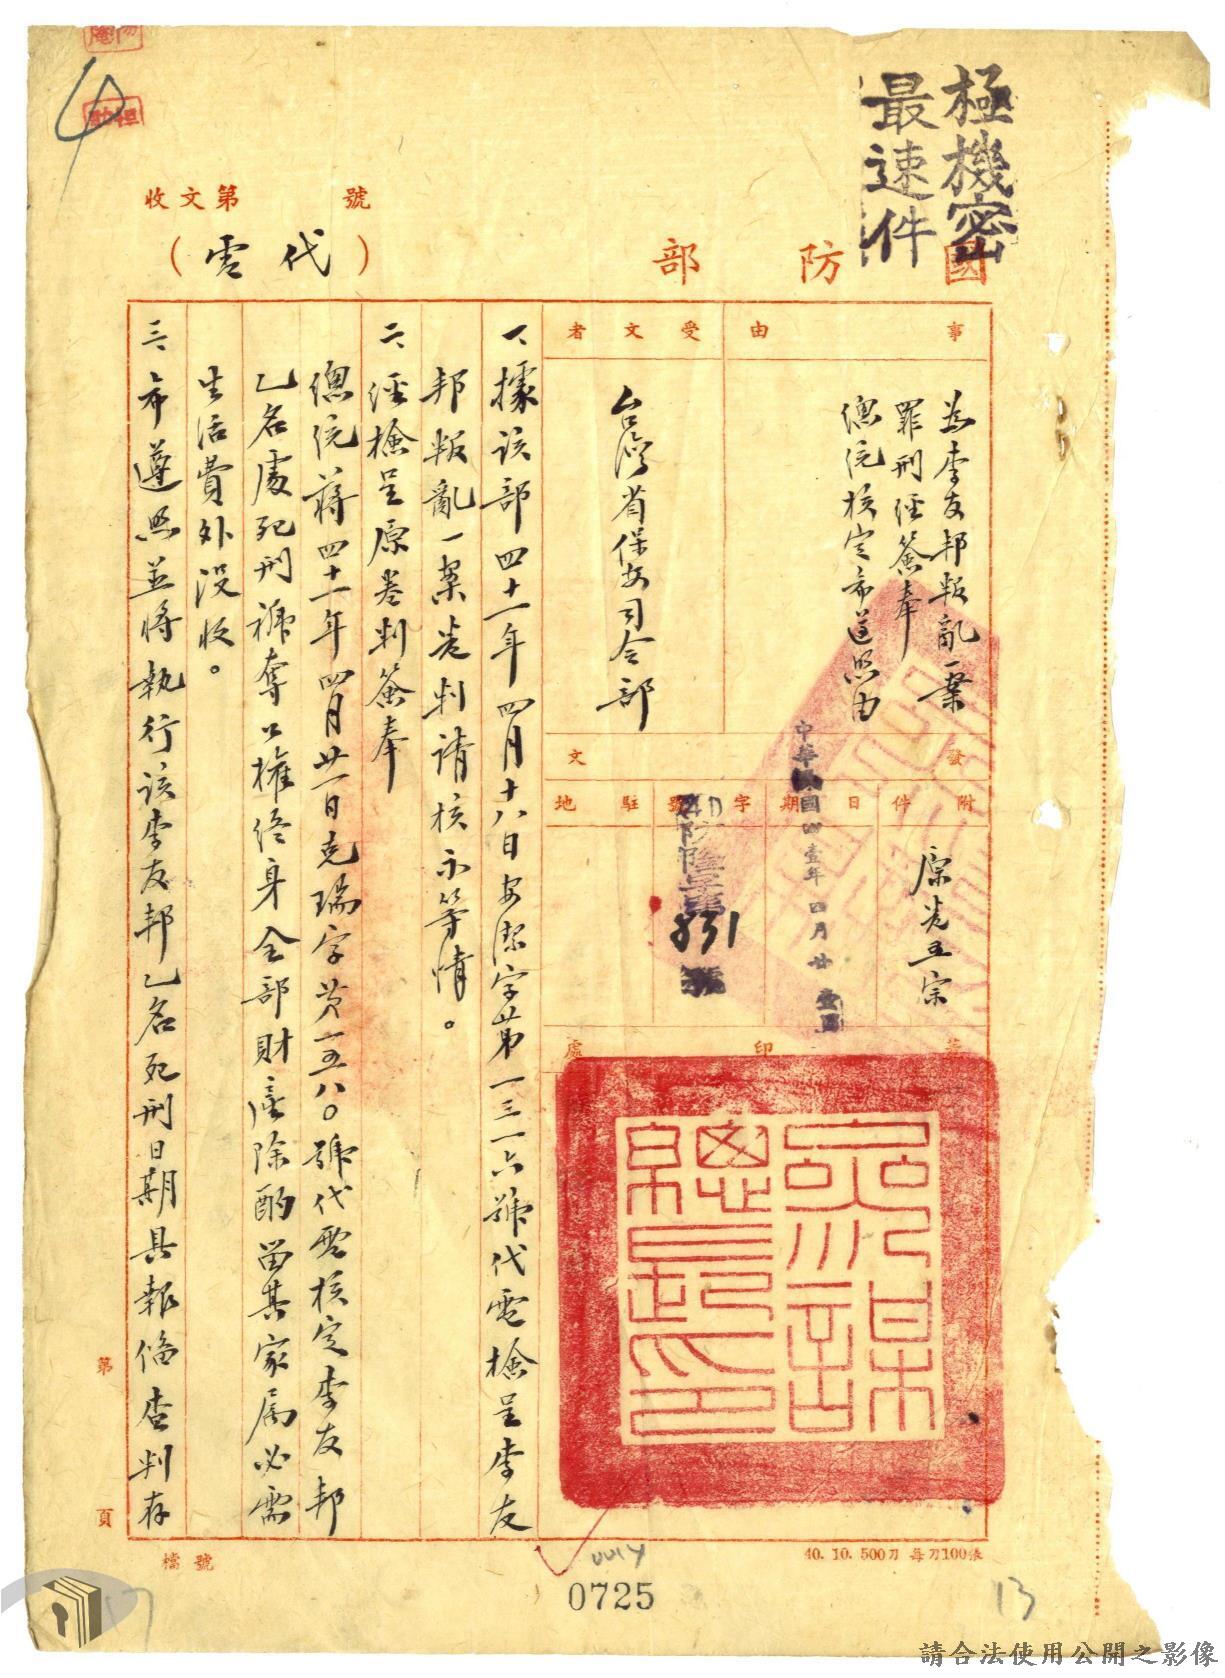 極機密
最速件
國防部
（代電）
收文第　號
事由
為李友邦叛亂一案
罪刑經簽奉
總統核定希遵照由
受文者
台灣省保安司令部
發文
附件
原卷五宗
日期
中華民國四壹年四月廿壹日
字號
831
號
駐地
蓋印處
參謀總長印
一、據該部四十一年四月十八日安潔字第一三一六號代電檢呈李友
邦叛亂一案卷判請核示等情。
二、經檢呈原卷判簽奉
總統蔣四十一年四月廿一日克瑞字第一五八〇號代電核定李友邦
乙名處死刑褫奪公權終身全部財產除酌留其家屬必需
生活費外沒收。
三、希遵照並將執行該李友邦乙名死刑日期具報備查判存
第　頁
檔號
40. 10. 500刀 每刀100張
0014
0725
13
17
請合法使用公開之影像